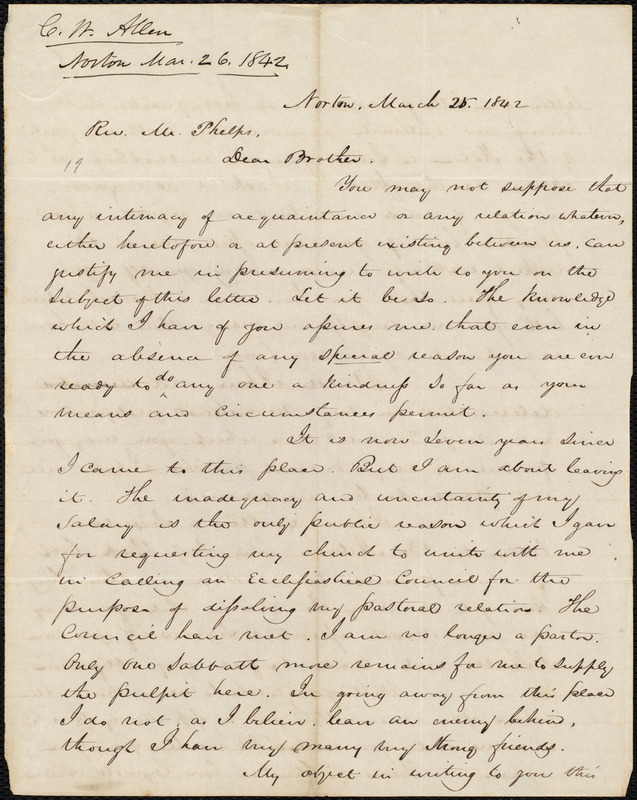 C. W. Allen
Norton Mar. 26. 1842.
Norton, March 25. 1842
Rev. Mr. Phelps,
19
Dear Brother.
You may not suppose that
any intimacy of acquaintance or any relation whatever,
either heretofore or at present existing between us, can
justify me in presuming to write to you on the
subject of this letter. Let it be so. The knowledge
which I have of you assures me, that even in
the absence of any special reason you are ever
ready to do any one a kindness so far as your
means and circumstances permit.
It is now seven years since
I came to this place. But I am about leaving
it. The inadequacy and uncertainty of my
salary is the only public reason which I gave
for requesting my church to unite with me
in calling an Ecclesiastical Council for the
purpose of dissolving my pastoral relation. The
Council have met. I am no longer a pastor.
Only one Sabbath more remains for me to supply
the pulpit here. In going away from this place
I do not, as I believe, leave an enemy behind,
though I have very many very strong friends.
My object in writing to you this